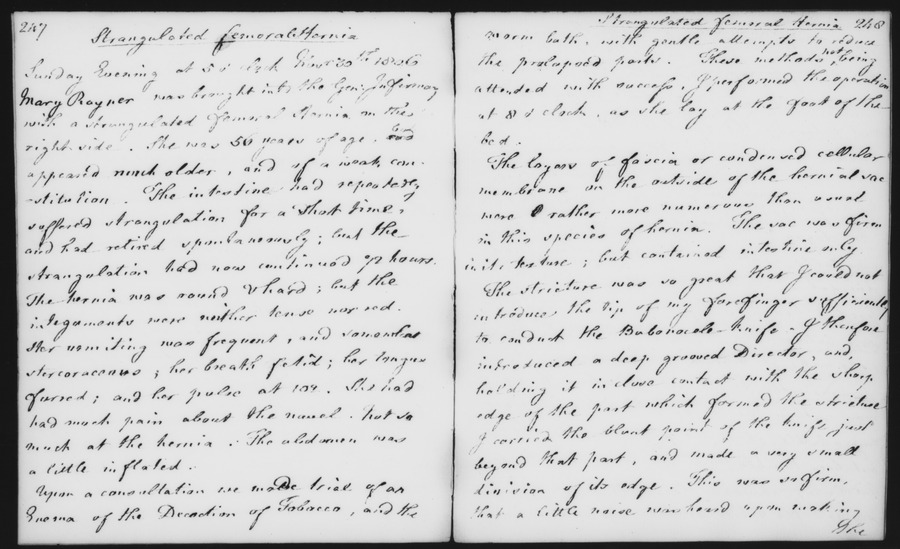 247
Strangulated femoral Hernia
Sunday Evening at 5 o'clock
Mary Rayner was brought into the Genl. Infirmary
with a strangulated femoral Hernia on the
right side. She was 56 years of age, and
appeared much older, and of a weak con-
-stitution. The intestine had repeatedly
suffered strangulation for a short time,
and had retired spontaneously; but the
strangulation had now continued 72 hours.
The hernia was round & hard; but the
integuments were neither tense nor red.
Her vomiting was frequent, and somewhat
stercoraceous; her breath fetid; her tongue
furred; and her pulse at. She had
had much pain about the navel. not so
much at the hernia. The abdomen was
a little inflated.
Upon a consultation we made trial of an
Enema of the Decoction of Tobacco, and the
Strangulated femoral Hernia 248
warm bath, with gentle attempts to reduce
the prolapsed parts. These methods not being
attended with success, I performed the operation
at 8 o'clock, as she lay at the foot of the
bed.
The layers of fascia or condensed cellular
membrane on the outside of the hernial sac
were rather more numerous than usual
in this species of hernia. The sac was firm
in its texture; but contained intestine only.
The stricture was so great that I could not
introduce the tip of my forefinger sufficiently
to conduct the Bubonocele-knife. I therefore
introduced a deep grooved Director, and,
holding it in close contact with the sharp
edge of the part which formed the stricture
I carried the blunt point of the knife just
beyond that part, and made a very small
division of its edge. This was so firm,
that a little noise was heard upon making
the